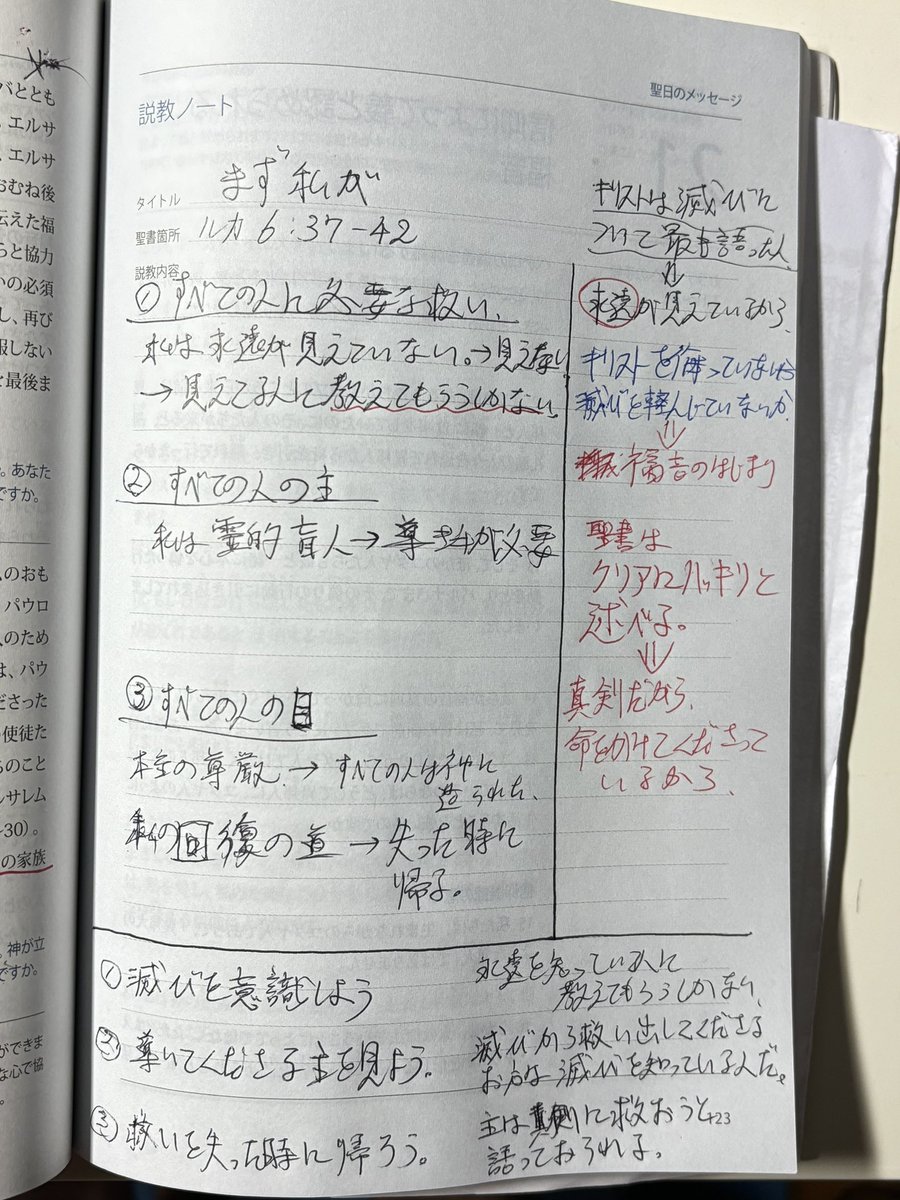 バととも
エルサ
エルサ
おむね後
伝えた福
らと協力
いの必須
し、再び
服しない
と最後ま
。あなた
ですか。
ムのおも
パウロ
人のため
は、パウ
ださった
の使徒た
らのこと
ルサレム
-30)。
の家族
。神が立
ですか。
ができま
な心で協
聖日のメッセージ
説教ノート
タイトル まず私が
聖書箇所 ルカ 6:37-42
説教内容
① すべての人に必要な救い、
私は永遠が見えていない。→見えない
→ 見えてる人に教えてもらうしかない。
② すべての人の主
私は霊的盲人→導き手が必要
③ すべての人の目
本当の尊厳 → すべての人は神に
造られた、
私の回復の道 → 失った時に
帰る。
キリストは滅びに
ついて最も語った人、
⇓
永遠が見えているから、
キリストを侮っていないか
滅びを軽んじていないか、
⇓
福音のはじまり
聖書は
クリアにハッキリと
述べる。
⇓
真剣だから、
命をかけてくださって
いるから、
① 滅びを意識しよう
永遠を知っている人に
教えてもらうしかない、
② 導いてくださる主を見よう。
滅びから救い出してくださる
お方は滅びを知っている人だ。
③ 救いを失った時に帰ろう。
主は真剣に救おうと
語っておられる。
423